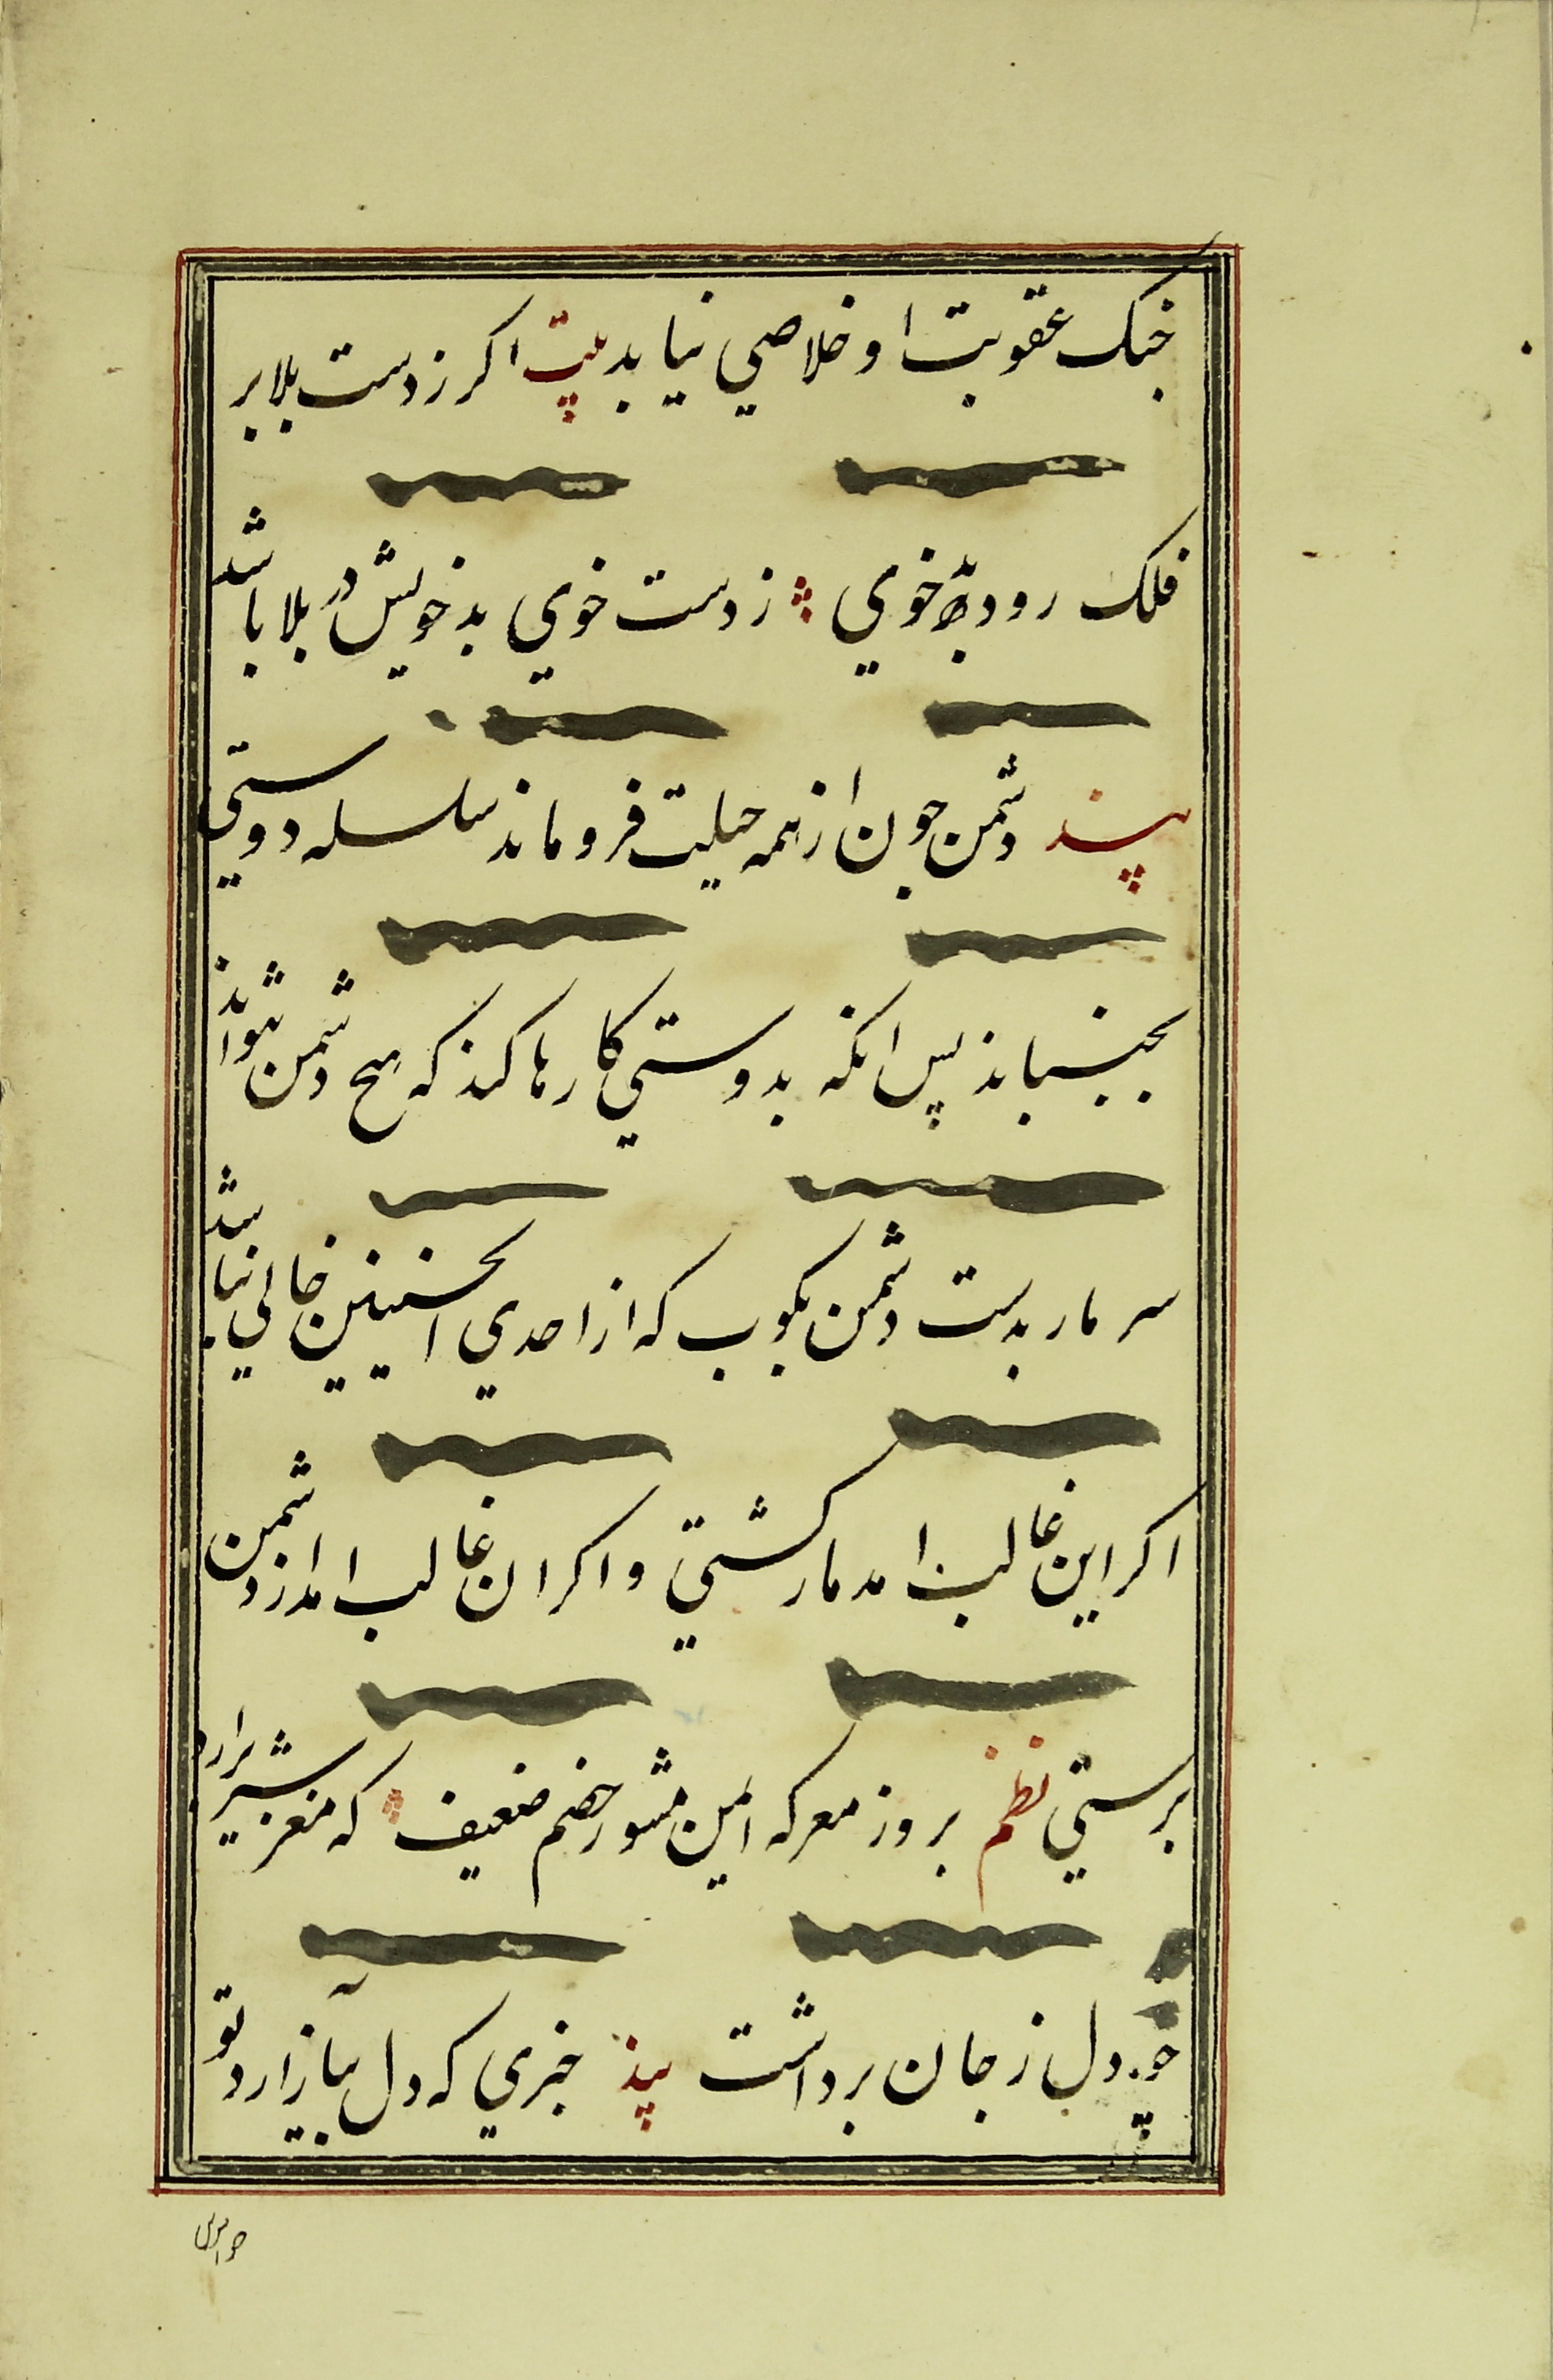 جنک عقوبت او خلاصي نيابد بيت اکر زدست بلا بر
فلک رود بدخوي زدست خوي بد خويش در بلا باشد
پند دشمن چون از همه حيلت فروماند سلسله دوستي
بجنباند پس انکه بدوستي کارها کند که هيچ دشمن نتواند
سر مار بدست دشمن بکوب که از احدي الحسنيين خالي نباشد
اکر اين غالب امد مار کشتي و اکر ان غالب امد از دشمن
برستي نظم بروز معرکه ايمن مشو ز خصم ضعيف که مغز شير برارد
چو دل ز جان برداشت پند خبري که دل بيازارد تو